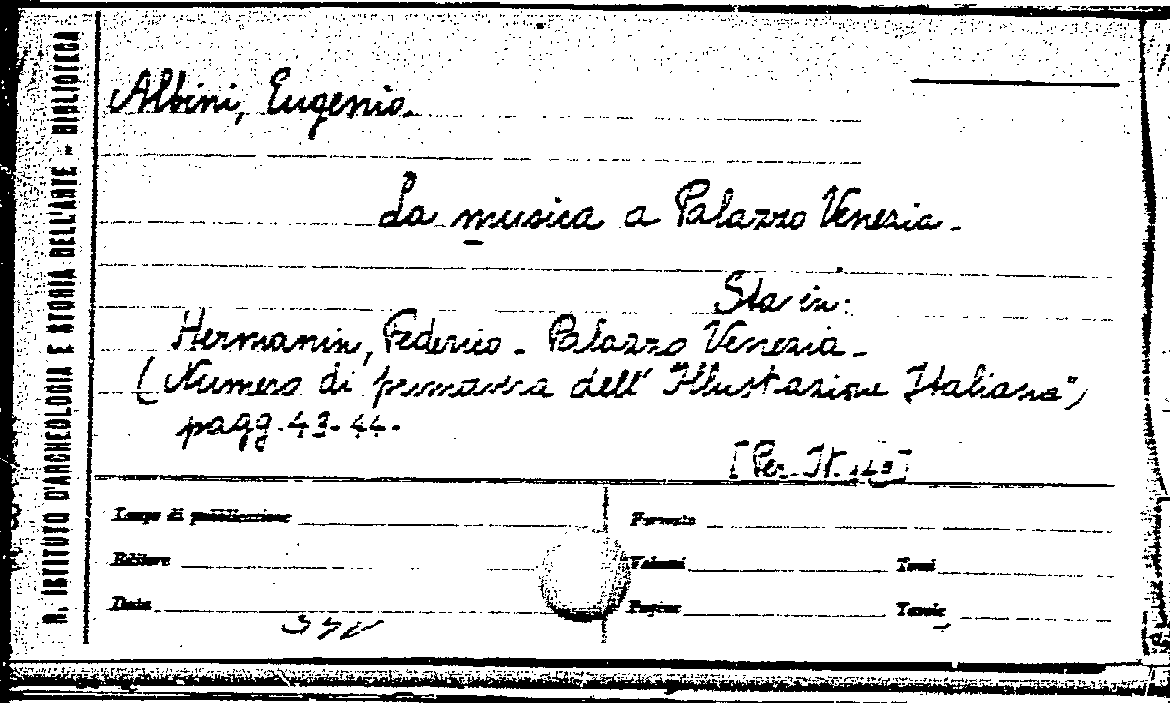 R. ISTITUTO D'ARCHEOLOGIA E STORIA DELL'ARTE - BIBLIOTECA
Albini, Eugenio.
La musica a Palazzo Venezia.
Sta in:
Hermanin, Federico - Palazzo Venezia -
(Numero di primavera dell'"Illustrazione Italiana")
pagg. 43-44.
[Per. It.
Luogo di pubblicazione
Formato
Editore
Volumi
Tomi
Data
Pagine
Tavole